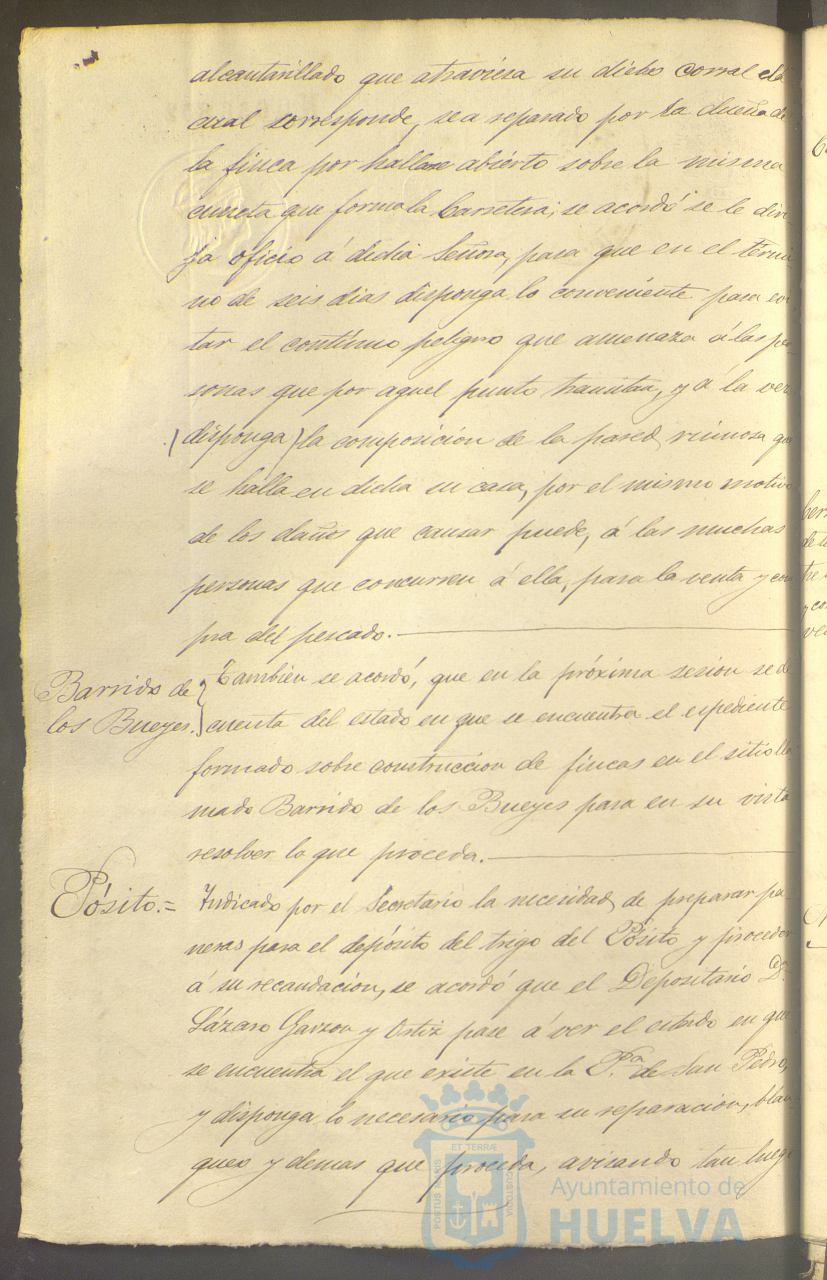 alcantarillado que atraviesa su dicho corral el
cual corresponde, sea reparado por la dueña de
la finca por hallarse abierto sobre la misma
cuneta que forma la Carretera; se acordó se le diri
ja oficio á dicha Señora, para que en el térmi-
no de seis dias disponga lo conveniente para evi
tar el contínuo peligro que amenaza á las per-
sonas que por aquel punto transitan, y á la vez
(disponga) la composicion de la pared ruinosa que
se halla en dicha su casa, por el mismo motivo
de los daños que causar puede, á las muchas
personas que concurren á ella, para la venta y com
pra del pescado.
Barrido de
los Bueyes.
Tambien se acordó, que en la próxima sesion se dé
cuenta del estado en que se encuentra el espediente
formado sobre construccion de fincas en el sitio lla
mado Barrido de los Bueyes para en su vista
resolver lo que proceda.
Pósito.=
Indicado por el Secretario la necesidad de preparar pa-
neras para el depósito del trigo del Pósito y proceder
á su recaudacion, se acordó que el Depositario D.
Lázaro Garzon y Ortiz pase á ver el estado en que
se encuentra el que existe en la P.ª de San Pedro,
y disponga lo necesario para su reparacion, blan-
queo y demas que proceda, avisando tan luego
PORTUS MARIS
ET TERRÆ
CUSTODIA
Ayuntamiento de
HUELVA